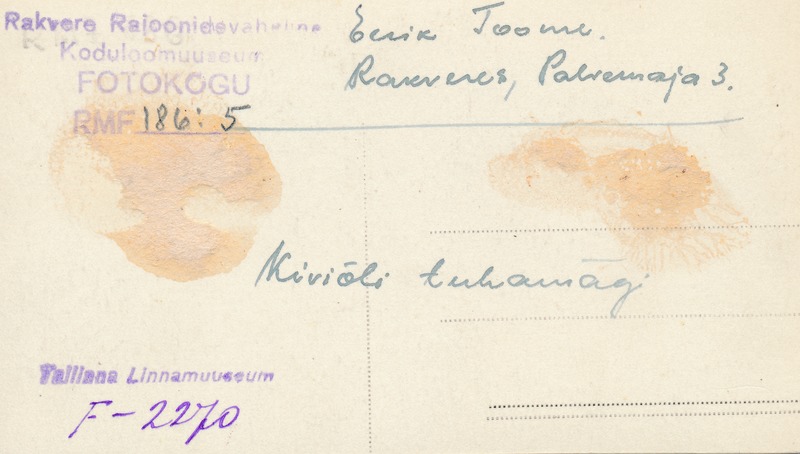 Rakvere Rajoonidevaheline
Koduloomuuseum
FOTOKOGU
RMF 186: 5
Eerik Toome.
Rakveres, Palvemaja 3.
Kiviõli tuhamägi
Tallinna Linnamuuseum
F-2270